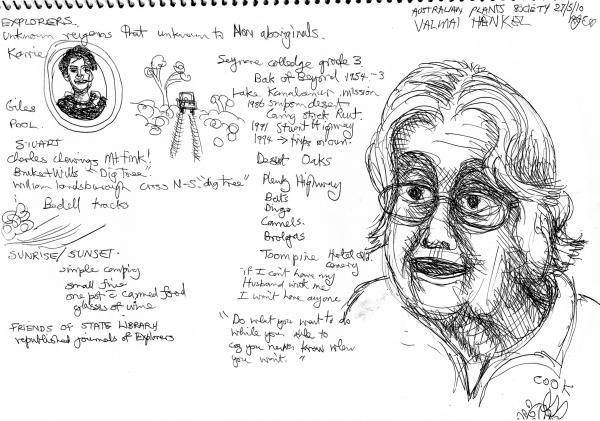 AUSTRALIAN PLANTS SOCIETY 27/5/10
VALMAI HENKEL
EXPLORERS.
Unknown regions that unknown to Non aboriginals.
Karrie
Giles
POOL.
STUART
Charles Chewings Mt Fink!
Burke+Wills "Dig Tree"
William Landsborough cross N-S "dig tree"
Bedell tracks
SUNRISE/SUNSET.
simple camping
small fire
one pot c canned food
glasses of wine
FRIENDS OF STATE LIBRARY
republished journals of Explorers
grade 3
Back of Beyond 1954.-3
Lake mission
1986 simpson desert
Canning stock Rout.
1991 Stuart Highway
1994 → trips on own.
Desert Oaks
Plenty Highway
Bats
Dingo
Camels.
Brolgas
Toompine Hotel old
"if I can't have my
Husband with me
I won't have anyone
"Do what you want to do
while your able to
coz you never know when
you won't."
COOK